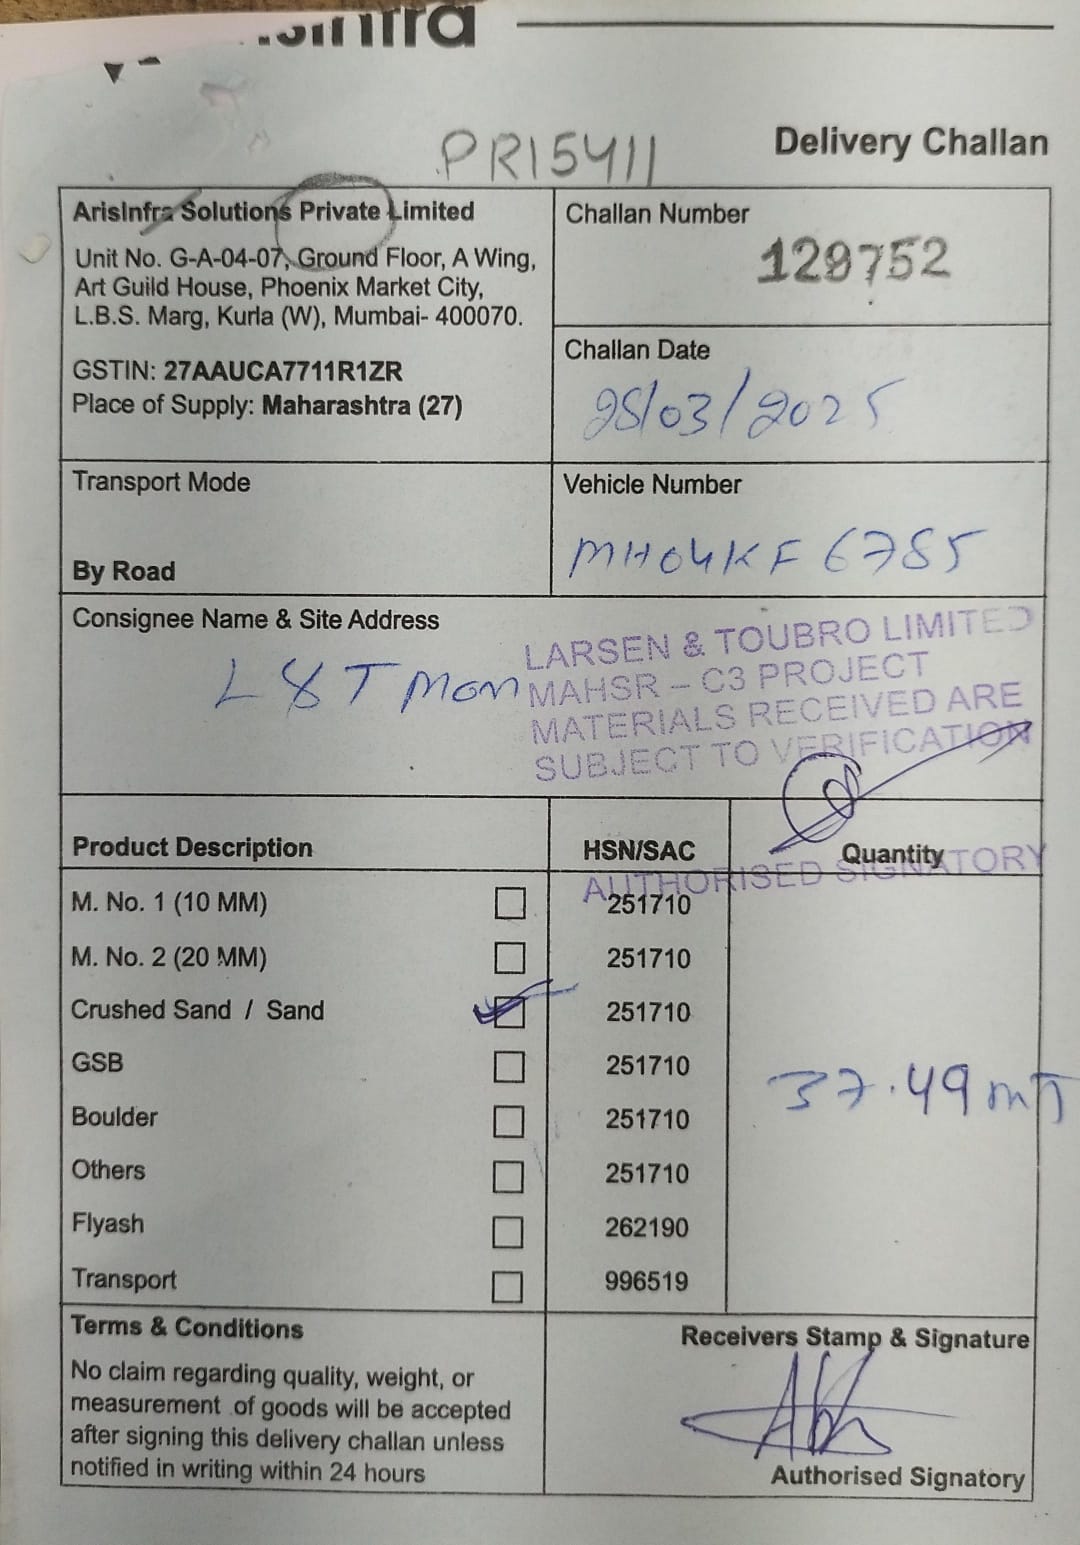 PR15411
Delivery Challan
ArisInfra Solutions Private Limited
Unit No. G-A-04-07, Ground Floor, A Wing,
Art Guild House, Phoenix Market City,
L.B.S. Marg, Kurla (W), Mumbai- 400070.
GSTIN: 27AAUCA7711R1ZR
Place of Supply: Maharashtra (27)
Challan Number
129752
Challan Date
28/03/2025
Transport Mode
By Road
Vehicle Number
MH04KF6785
Consignee Name & Site Address
L&T mom
LARSEN & TOUBRO LIMITED
MAHSR – C3 PROJECT
MATERIALS RECEIVED ARE
SUBJECT TO VERIFICATION
AUTHORISED SIGNATORY
Product Description HSN/SAC Quantity
M. No. 1 (10 MM) 251710
M. No. 2 (20 MM) 251710
Crushed Sand / Sand 251710
GSB 251710
Boulder 251710
Others 251710
Flyash 262190
Transport 996519
37.49 mT
Terms & Conditions
No claim regarding quality, weight, or
measurement of goods will be accepted
after signing this delivery challan unless
notified in writing within 24 hours
Receivers Stamp & Signature
Authorised Signatory